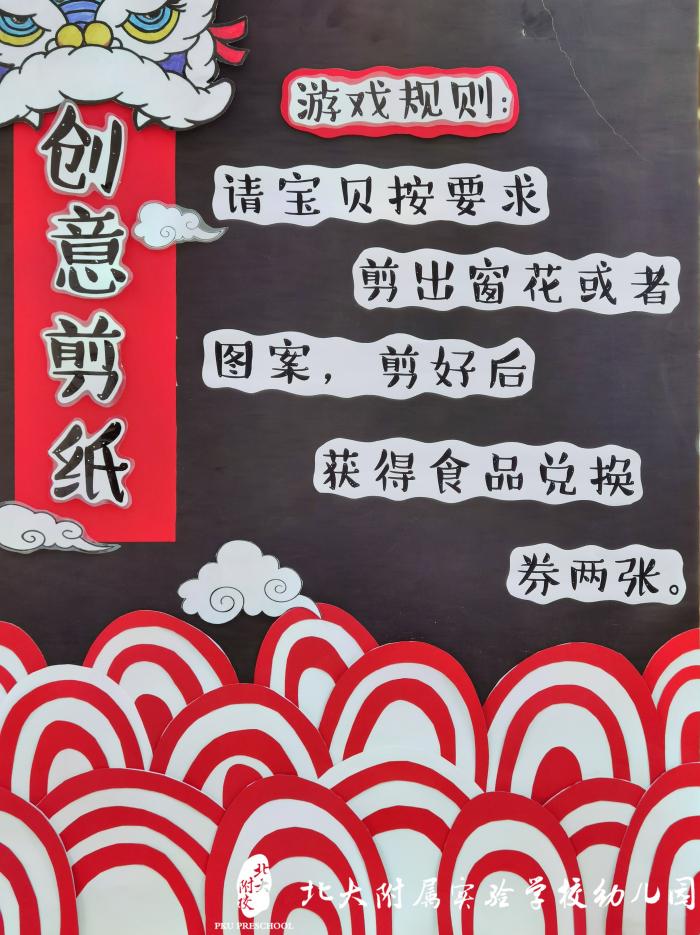 创意剪纸
游戏规则:
请宝贝按要求
剪出窗花或者
图案，剪好后
获得食品兑换
券两张。
北大附校
PKU PRESCHOOL
北大附属实验学校幼儿园